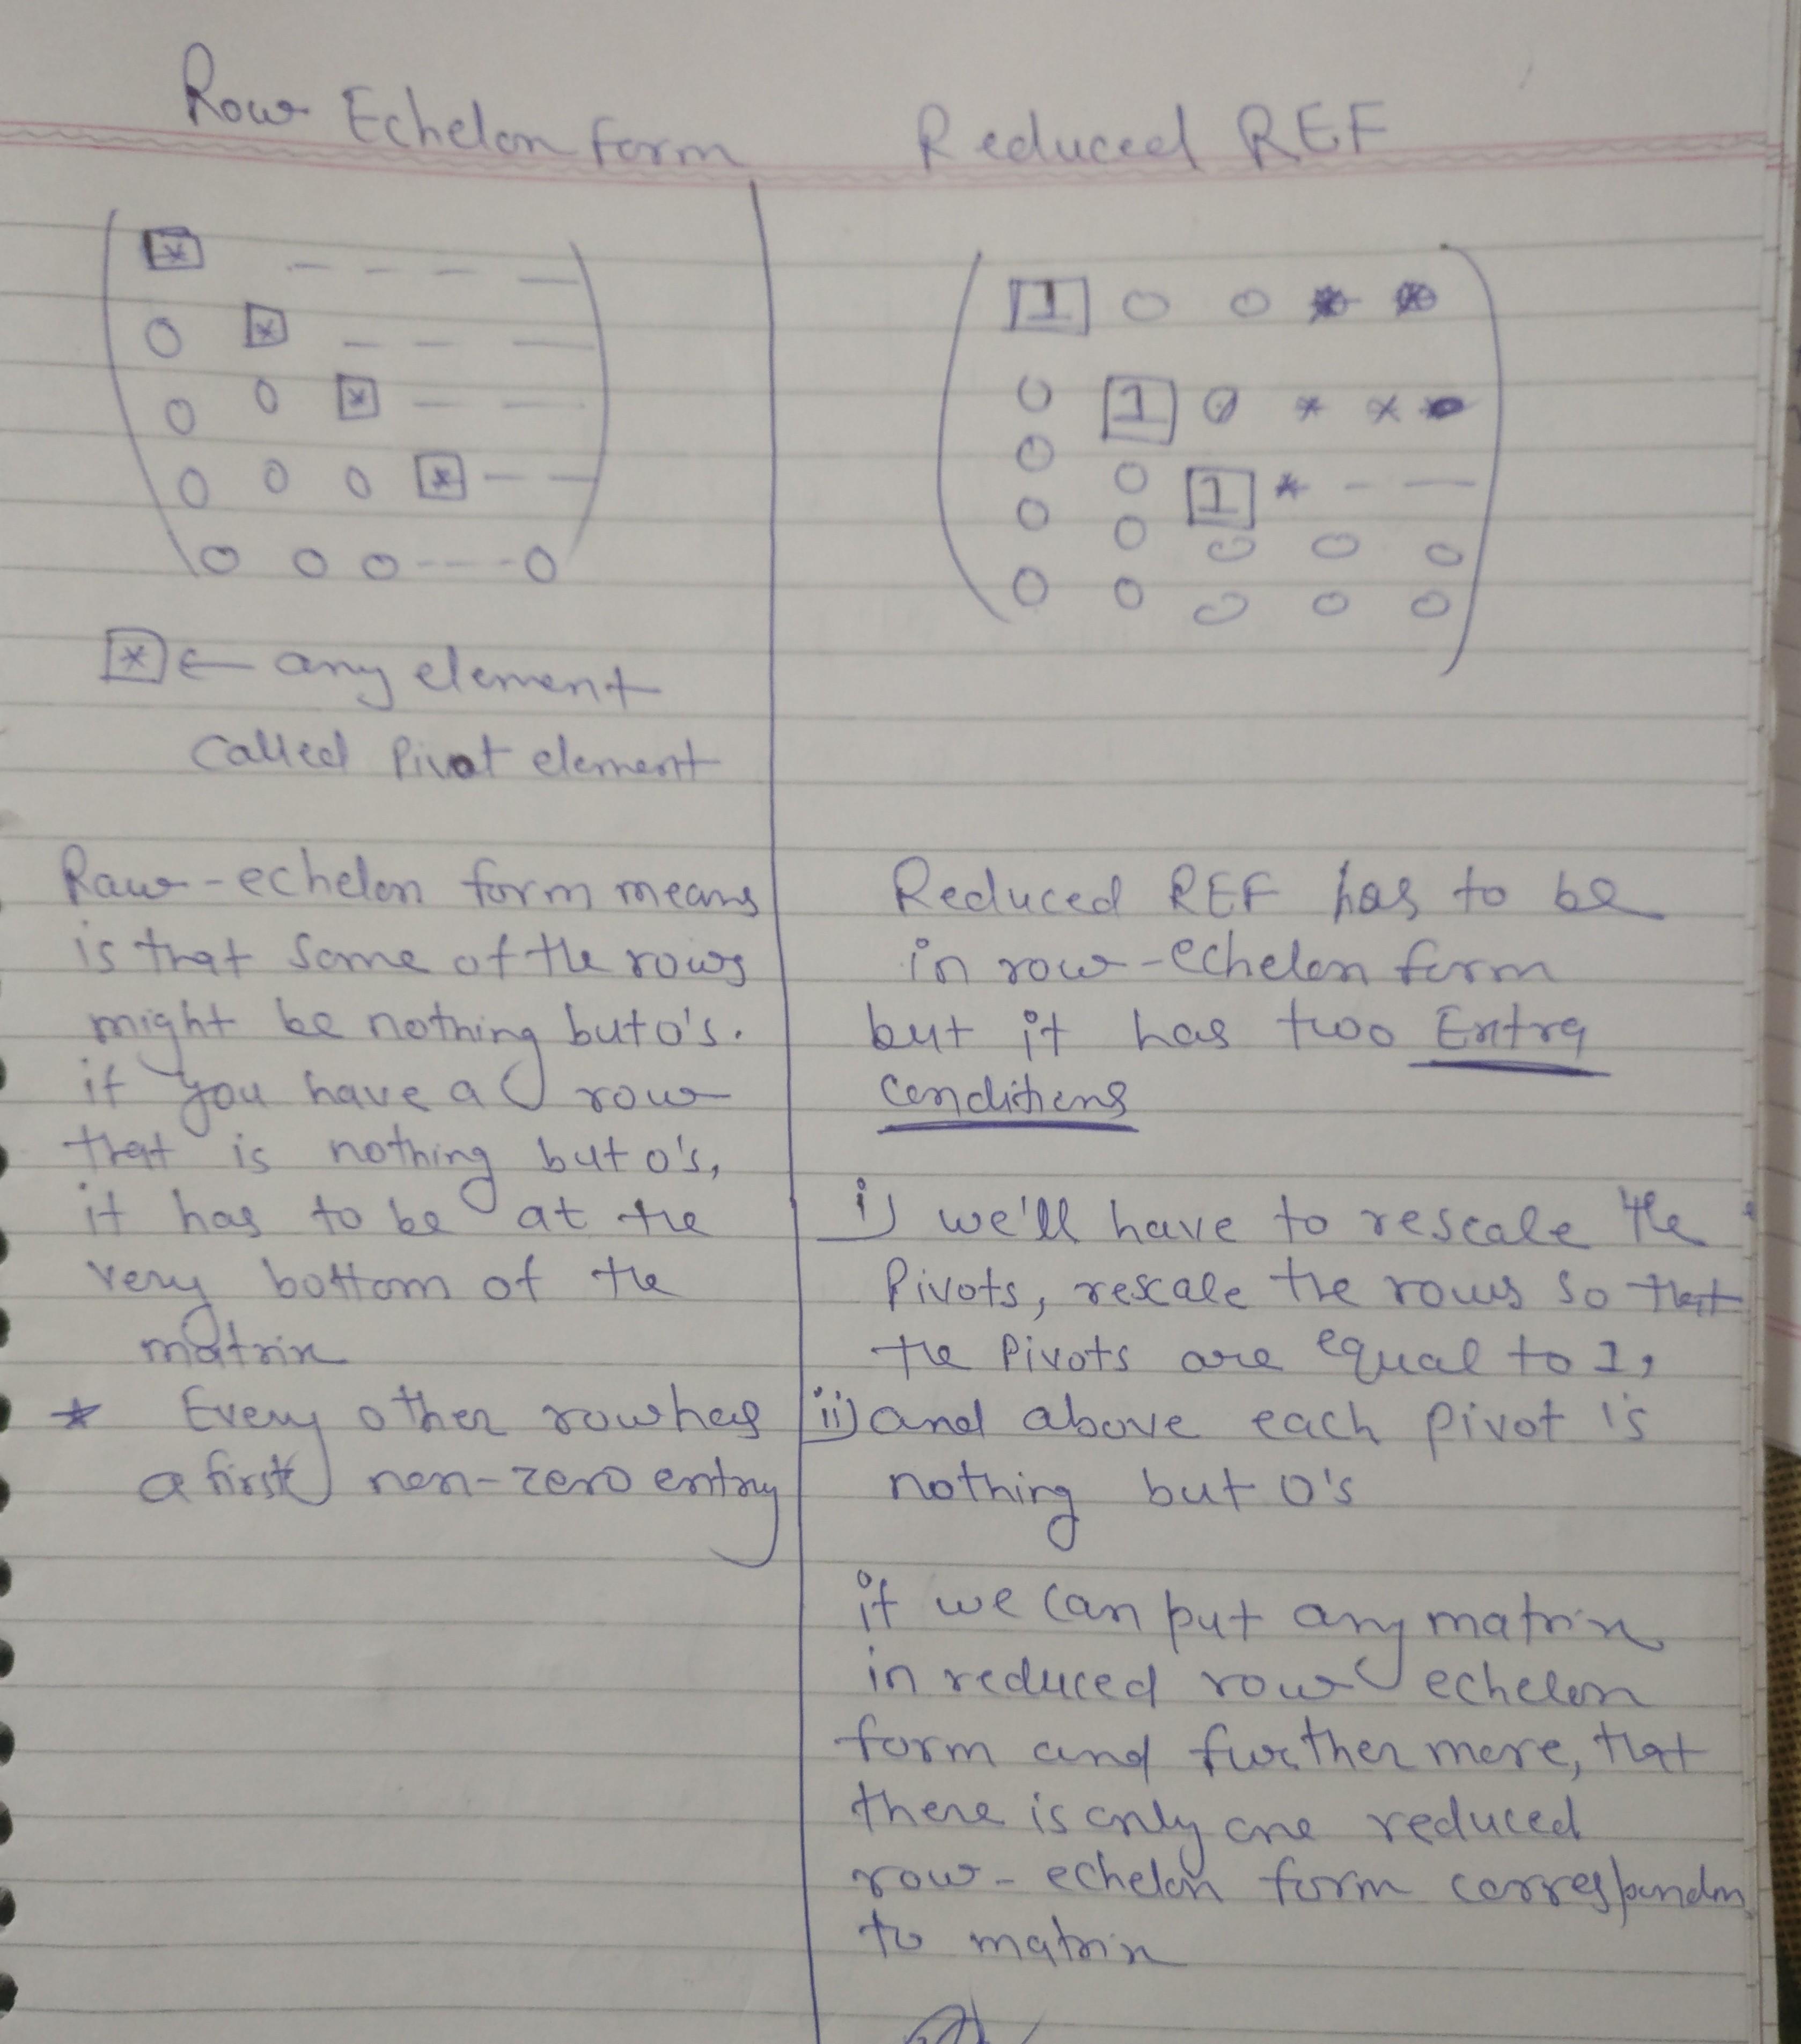 Row Echelon form
[*] - - - -
0 [*] - - -
0 0 [*] - -
0 0 0 [*] - -
0 0 0 - - - 0
[*] ← any element
called Pivot element
Raw-echelon form means
is that some of the rows
might be nothing but 0's.
if you have a row
that is nothing but 0's,
it has to be at the
very bottom of the
matrix
* Every other row has
a first non-zero entry
Reduced REF
[1] 0 0 * *
0 [1] 0 * *
0 0 [1] * - -
0 0 0 0 0
0 0 0 0 0
Reduced REF has to be
in row-echelon form
but it has two Extra
conditions
i) we'll have to rescale the
Pivots, rescale the rows so that
the Pivots are equal to 1,
ii) and above each pivot is
nothing but 0's
if we can put any matrix
in reduced row echelon
form and further more, that
there is only one reduced
row-echelon form
to matrix